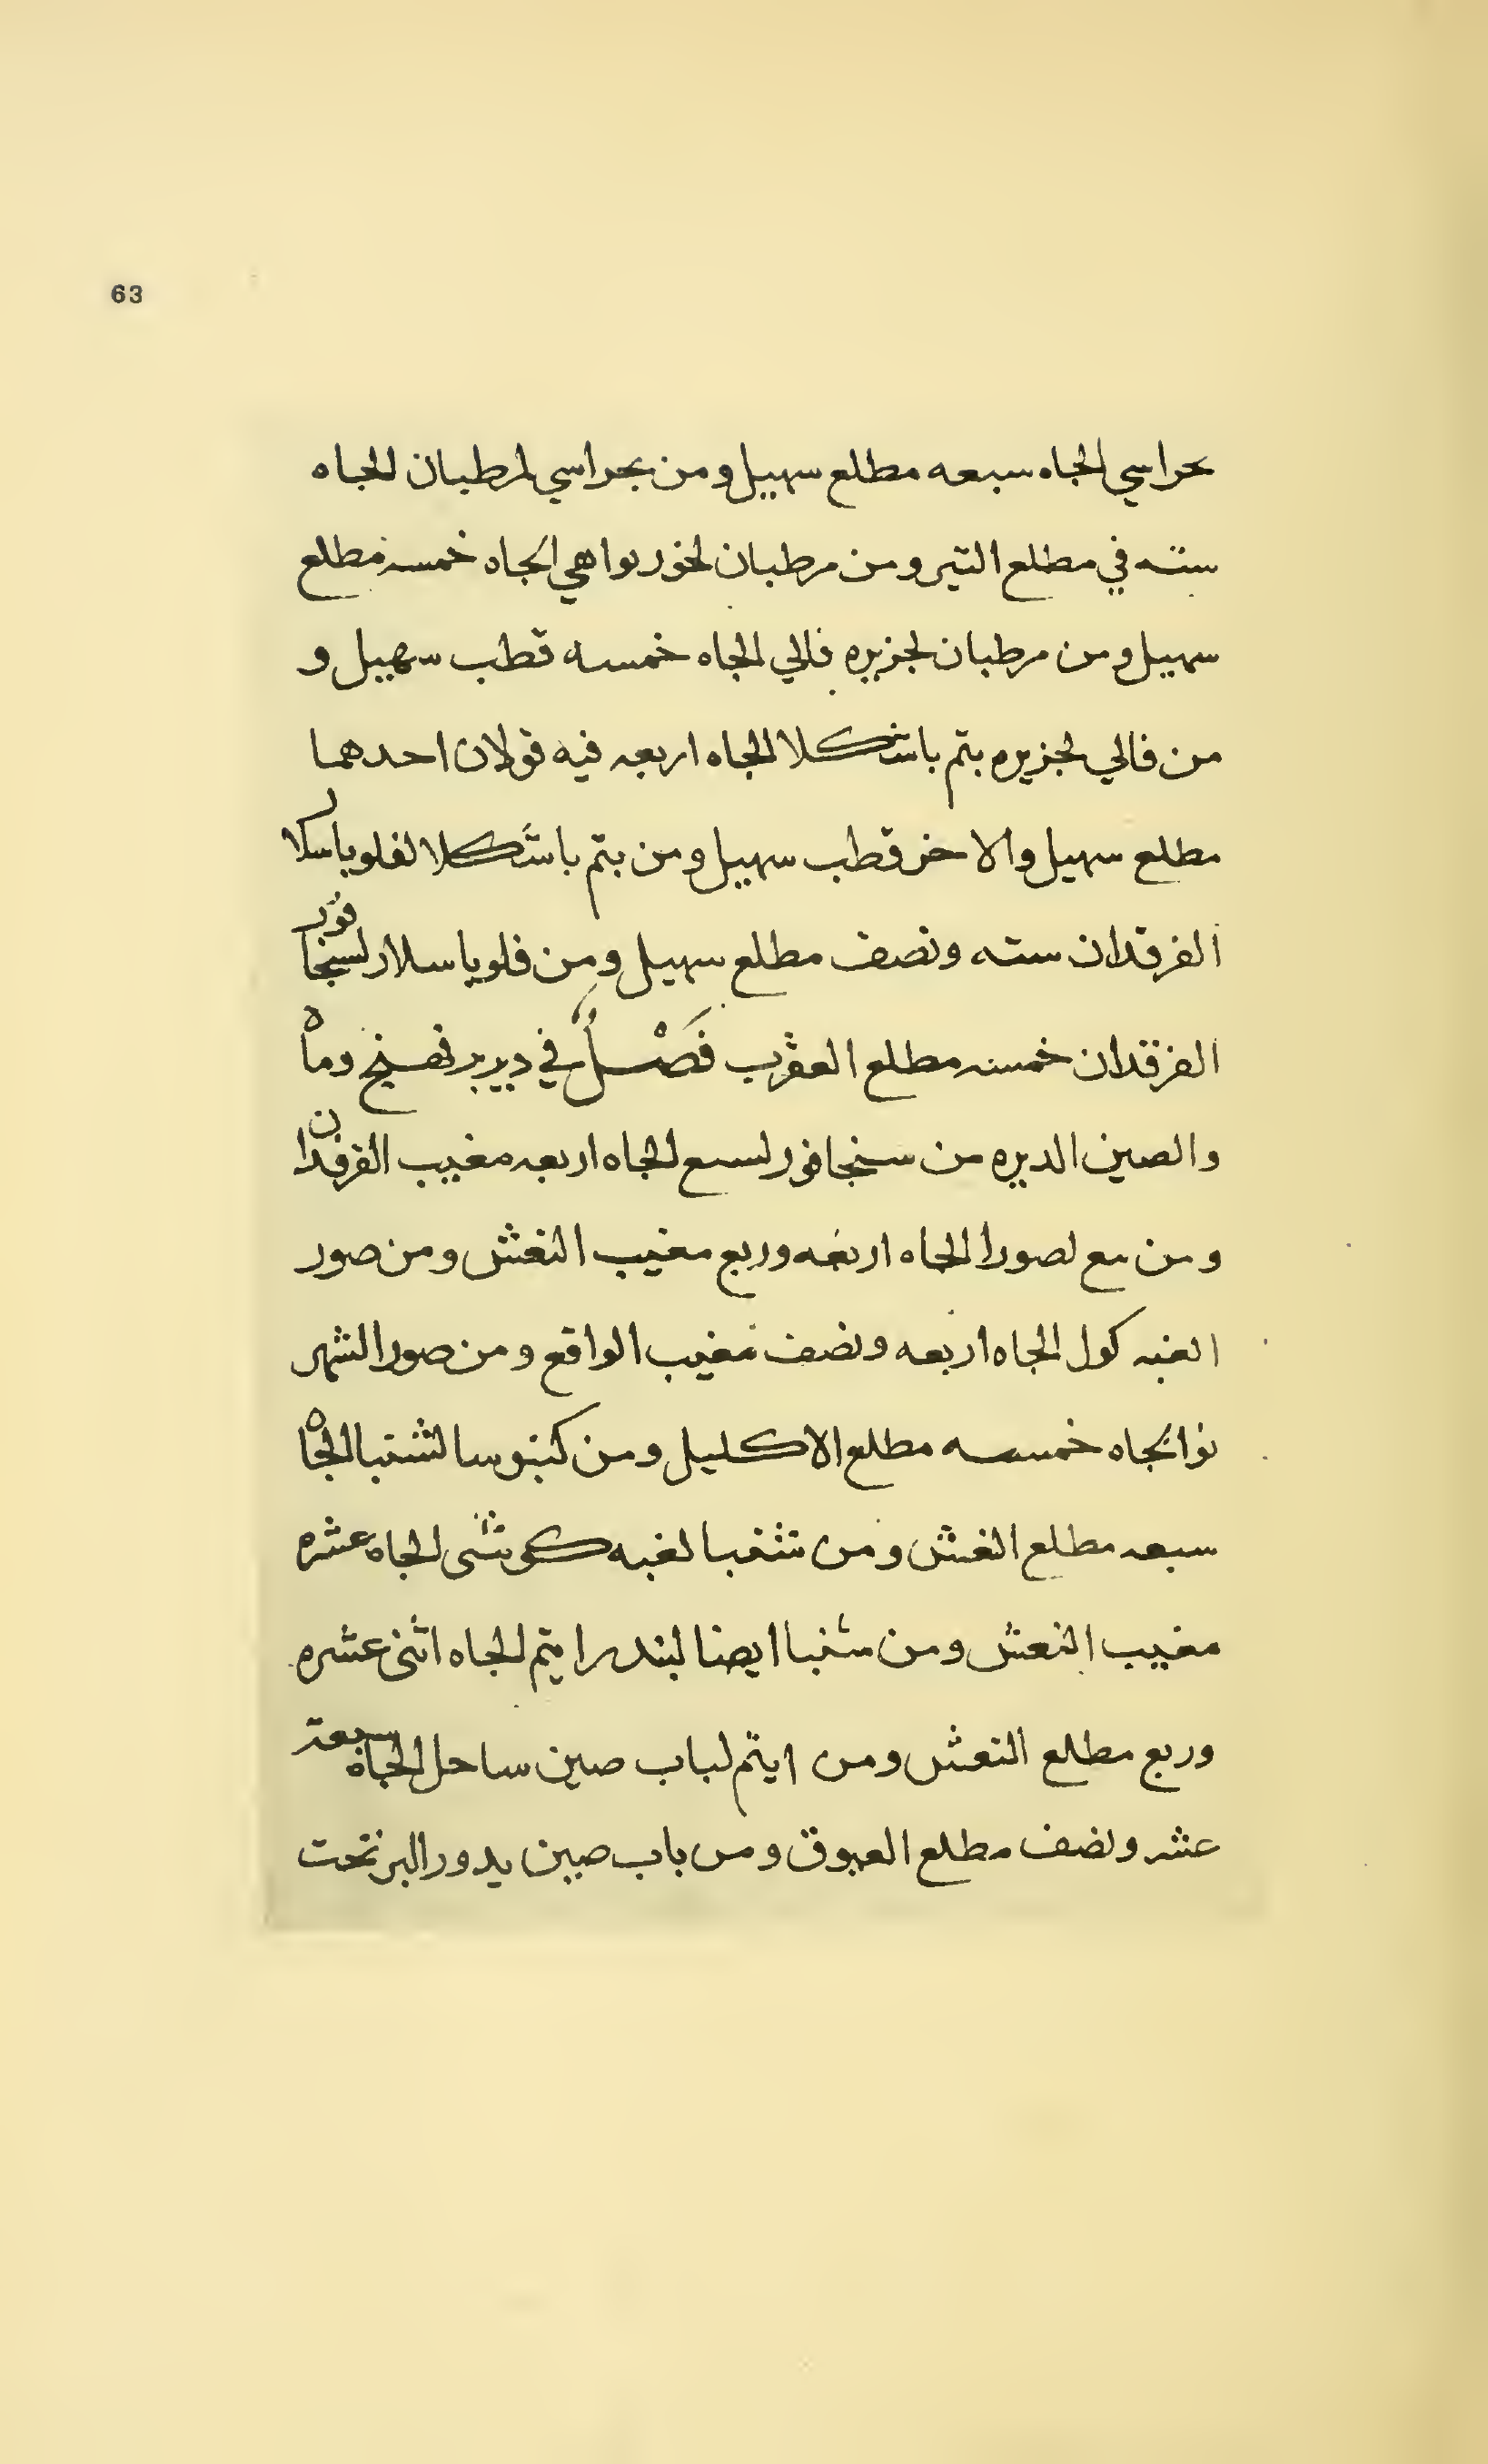 63
بحراسي الجاه سبعه مطلع سهيل ومن بحراسي لمرطبان الجاه
سته في مطلع التير ومن مرطبان لخور نواهي الجاه خمسه مطلع
سهيل ومن مرطبان لجزيره فالي الجاه خمسه قطب سهيل و
من فالي لجزيره بتم باشكلا الجاه اربعه فيه قولان احدهما
مطلع سهيل والاخر قطب سهيل ومن بتم باشكلا لفلوباسلار
الفرقدان سته ونصف مطلع سهيل ومن فلوباسلار لسنجافور
الفرقدان خمسه مطلع العقرب فَصْلٌ في دير بر وماه
والصين الديره من سنجافور الجاه اربعه مغيب الفرقدان
ومن لصورا الجاه اربعه وربع مغيب النعش ومن صور
الغبه كول الجاه اربعه ونصف مغيب الواقع ومن صورا لشهر
نوا الجاه خمسه مطلع الاكليل ومن كنبوسا لشنبا الجاه
سبعه مطلع النعش ومن شنبا لغبه كوشى الجاه عشره
مغيب النعش ومن شنبا ايضا لبندر ايتم الجاه اثنى عشره
وربع مطلع النعش ومن ايتم لباب صين ساحل الجاه سبعة
عشر ونصف مطلع العيوق ومن باب صين يدور البر تحت